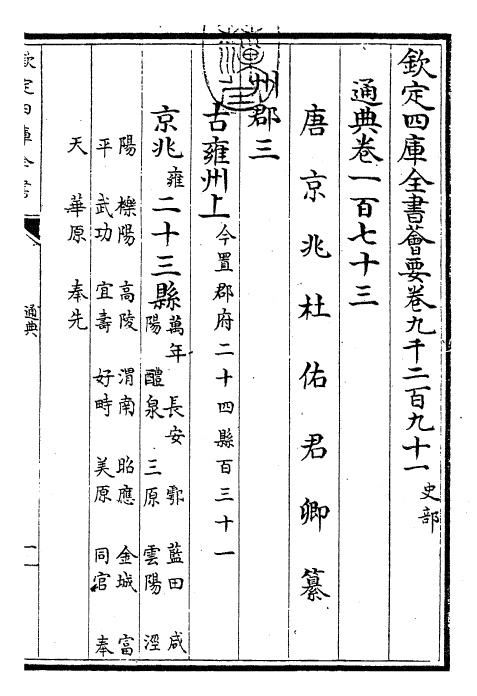 欽定四庫全書薈要卷九千二百九十一 史部
通典卷一百七十三
唐京兆杜佑君卿纂
州郡三
古雍州上 今置郡府二十四縣百三十一
京兆雍二十三縣 萬年 長安 鄠 藍田 咸
陽 醴泉 三原 雲陽 涇
陽 櫟陽 高陵 渭南 昭應 金城 富
平 武功 宜壽 好畤 美原 同官 奉
天 華原 奉先
欽定四庫全書
通典
一